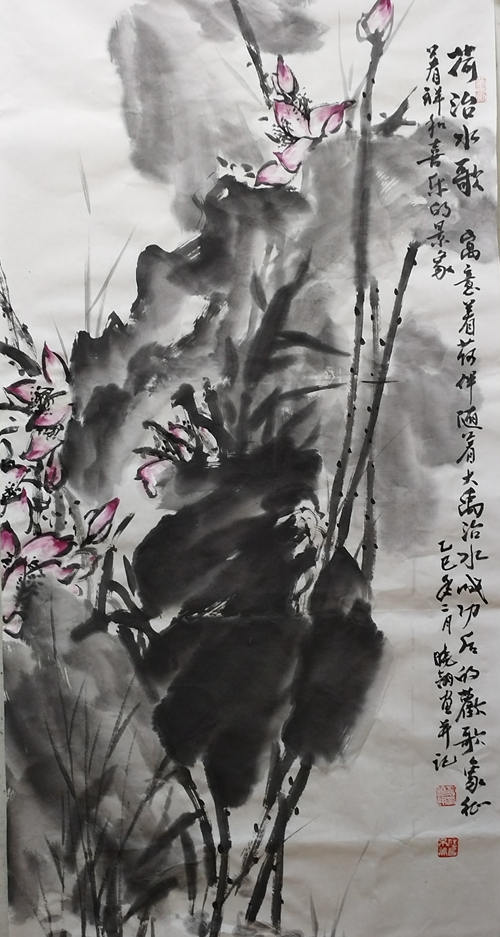 荷治水歌 寓意着荷伴随着大禹治水成功后的歡歌象征
着祥和喜乐的景象
乙巳年二月 晓 画并记